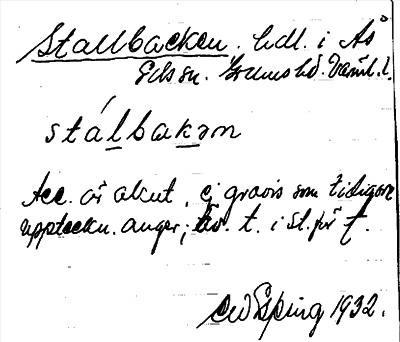 Stallbacken. hdl. i Ås
Eds sn. Grums hd. Värml. l.
stálbakən
Acc. är akut, ej gravis som tidigare
uppteckn. anger; äv. t. i st. för t.
CW Esping 1932.